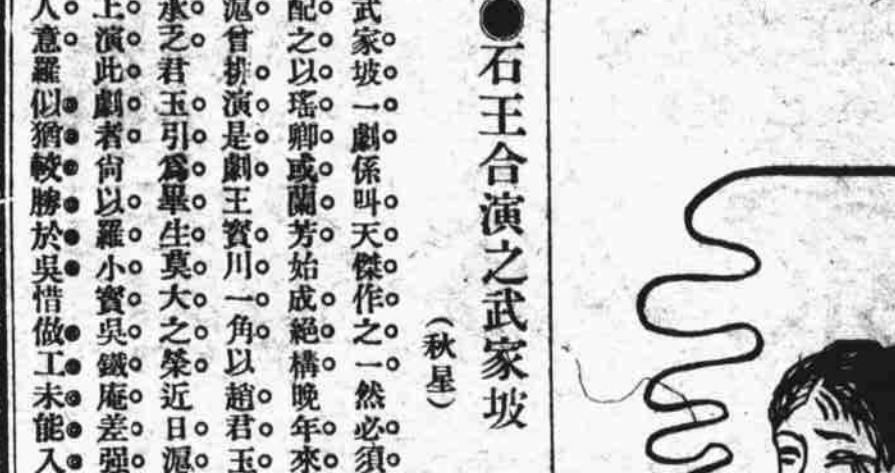 ●石王合演之武家坡
（秋星）
武家坡一劇係叫天傑作之一然必須
配之以瑤卿或蘭芳始成絕構晚年來
滬曾排演是劇王寳川一角以趙君玉
承乏君玉引爲畢生莫大之榮近日滬
上演此劇者尙以羅小寳吳鐵庵差强
人意羅似猶較勝於吳惜做工未能入